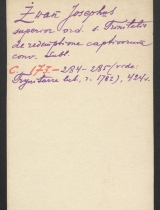 Żwan Josephus
superior ord. s. Trinitatis
de redemptione captivorum
conv. Lubl.
C. 177 - 284-285 /vide:
Trynitarze lub., r. 1782), 424v.